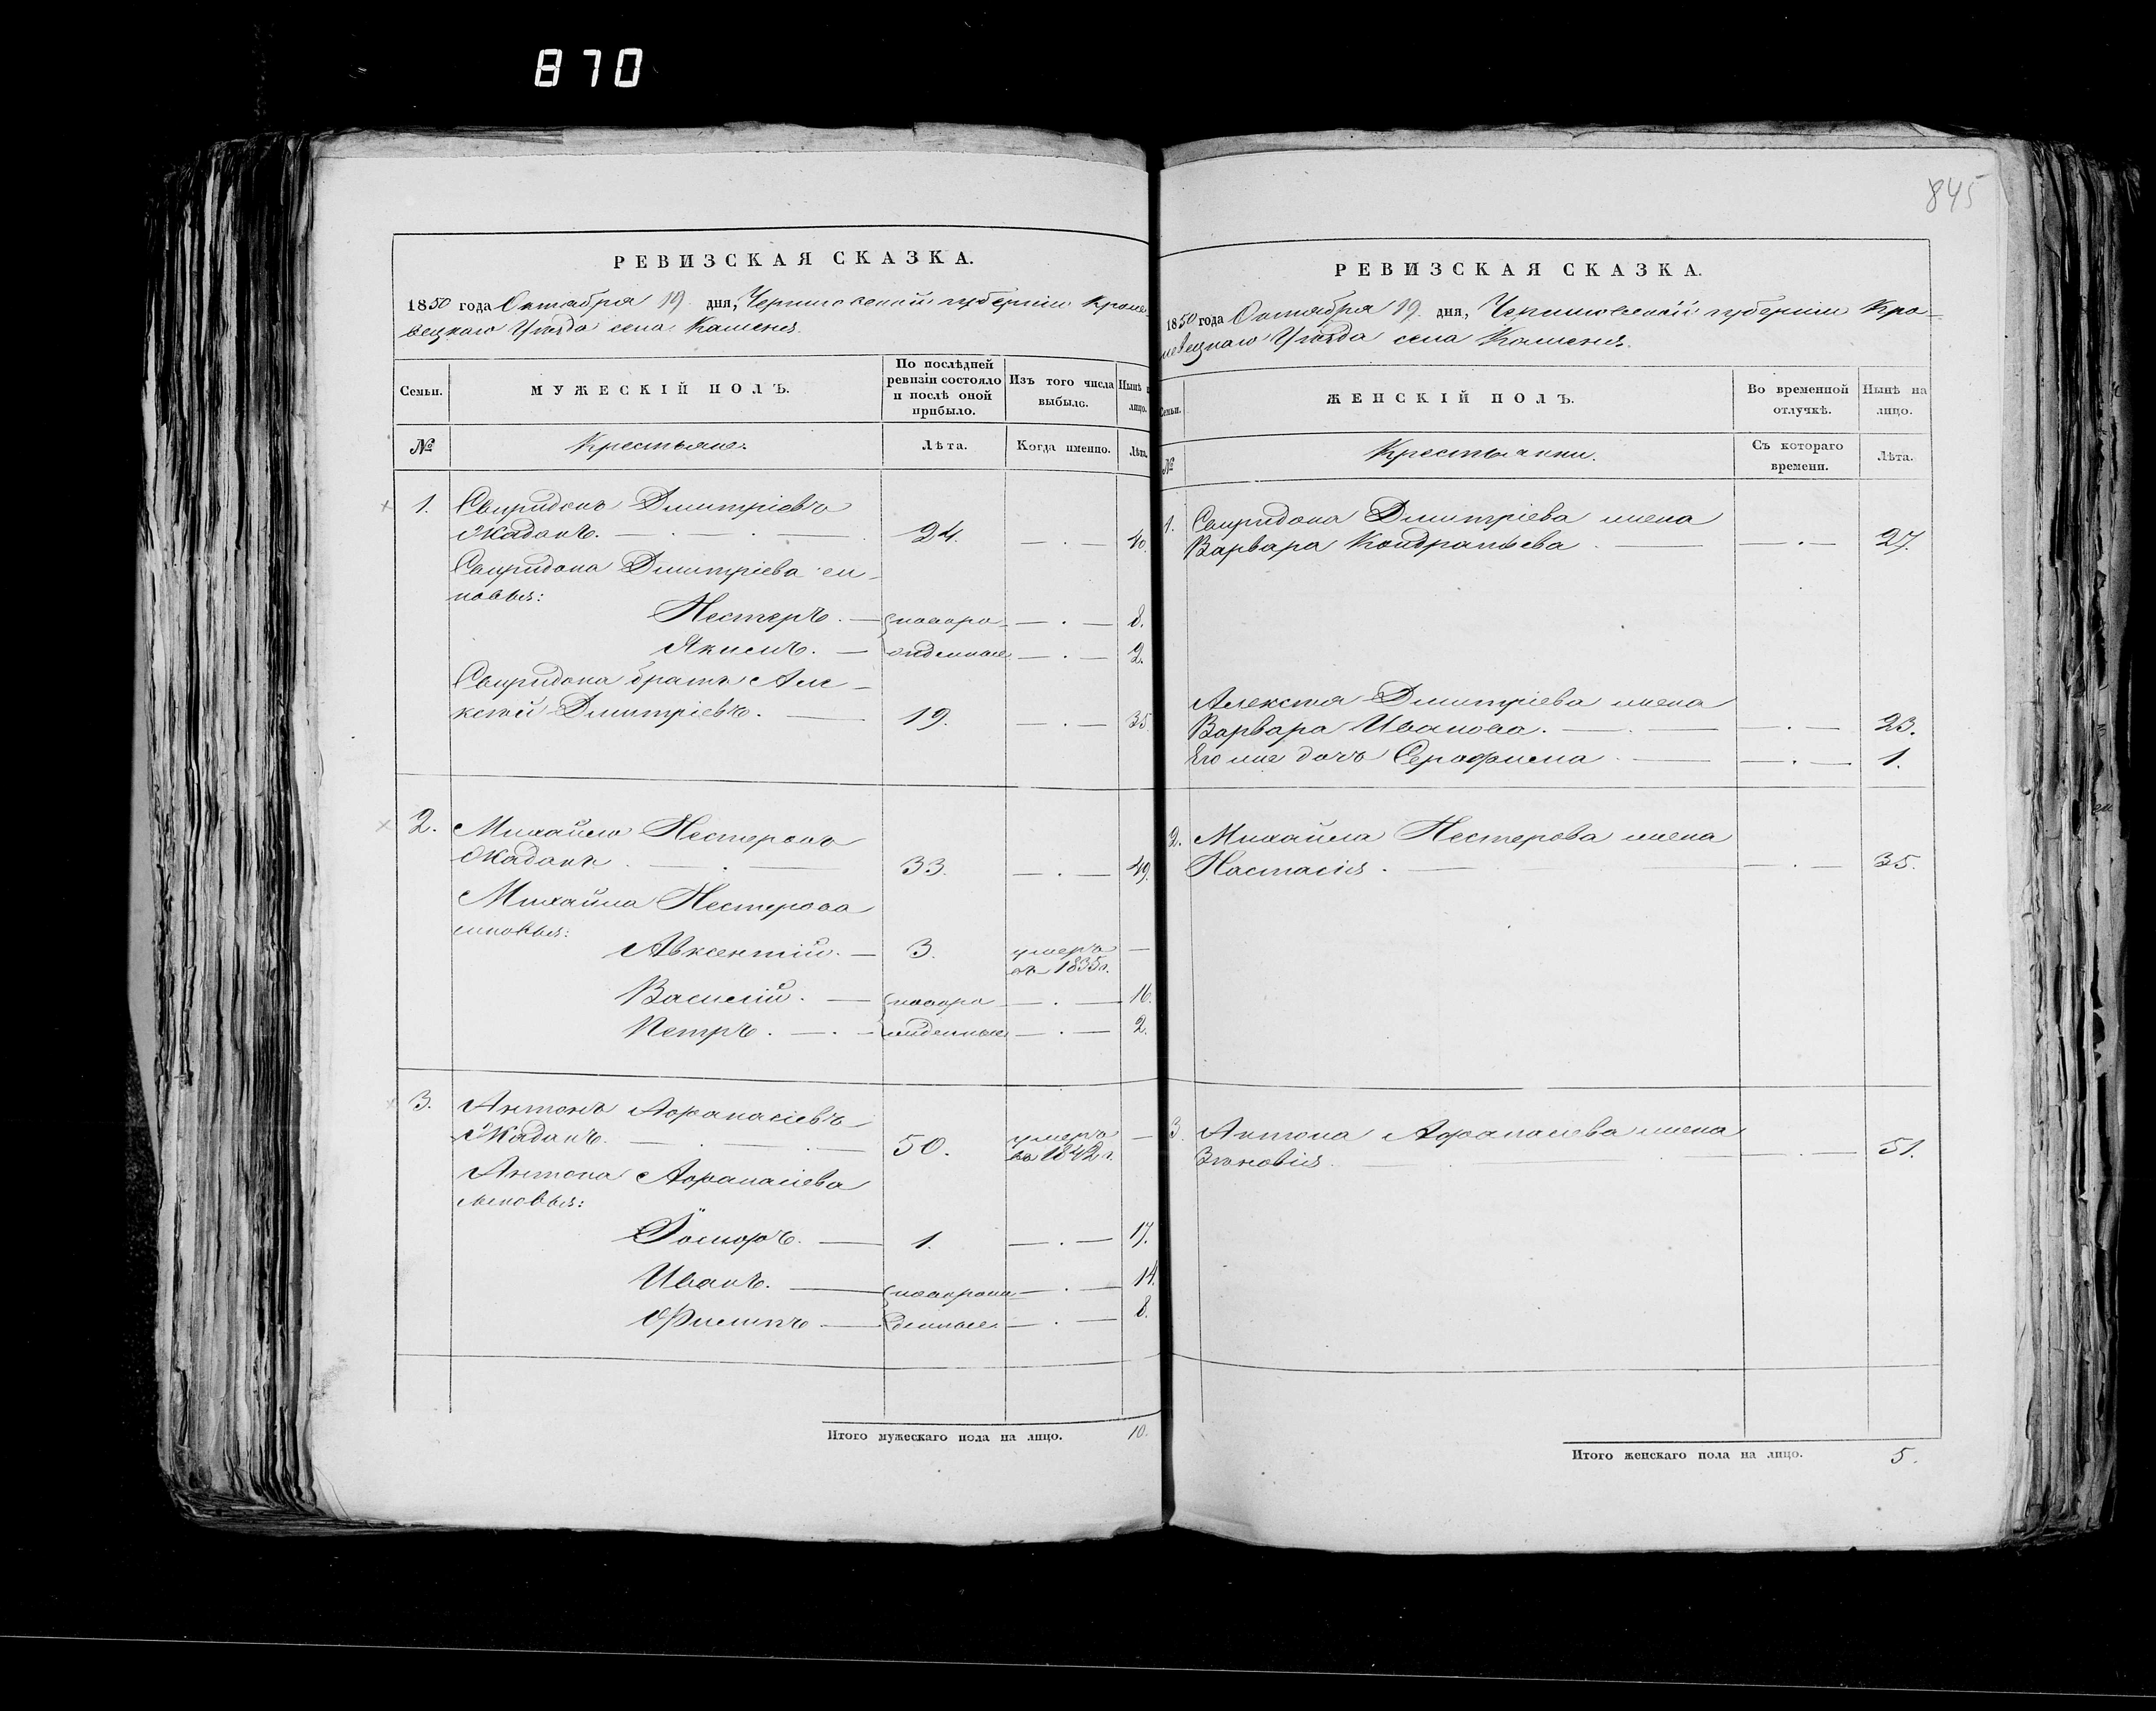 870
845
РЕВИЗСКАЯ СКАЗКА.
1850 года Октября 19 дня, Черниговской губерніи Кроле-
вецкаго Уѣзда села Каменя.
Семьи.
МУЖЕСКІЙ ПОЛЪ.
По послѣдней ревизіи состояло и послѣ оной прибыло.
Изъ того числа выбыло.
Нынѣ н лицо.
№
Крестьяне.
Лѣта.
Когда именно.
Лѣта.
1. Свиридонъ Дмитріевъ
Жаданъ. 24. 40.
Свиридона Дмитріева сы-
новья:
Нестеръ. новоро- 8.
Якимъ. жденные 2.
Свиридона братъ Але-
ксѣй Дмитріевъ. 19. 35.
2. Михайло Нестеровъ
Жаданъ. 33. 49.
Михайла Нестерова
сыновья:
Авксентій. 3. умеръ
въ 1835 г.
Василій. новоро 16.
Петръ. жденные 2.
3. Антонъ Афанасіевъ
Жаданъ. 50. умеръ
въ 1842 г.
Антона Афанасіева
сыновья:
1. 17.
Иванъ. новорож 14.
Филипъ. денные 8.
Итого мужескаго пола на лицо. 10.
РЕВИЗСКАЯ СКАЗКА.
1850 года Октября 19. дня, Черниговской губерніи Кро-
левецкаго Уѣзда села Каменя.
Семьи.
ЖЕНСКІЙ ПОЛЪ.
Во временной отлучкѣ.
Нынѣ на лицо.
№
Крестьянки.
Съ котораго времени.
Лѣта.
1. Свиридона Дмитріева жена
Варвара Кондратьева 27.
Алексѣя Дмитріева жена
Варвара Иванова. 23.
Его же дочь Серафима 1.
2. Михайла Нестерова жена
Настасія. 35.
3. Антона Афанасіева жена
Зѣновія. 51.
Итого женскаго пола на лицо. 5.